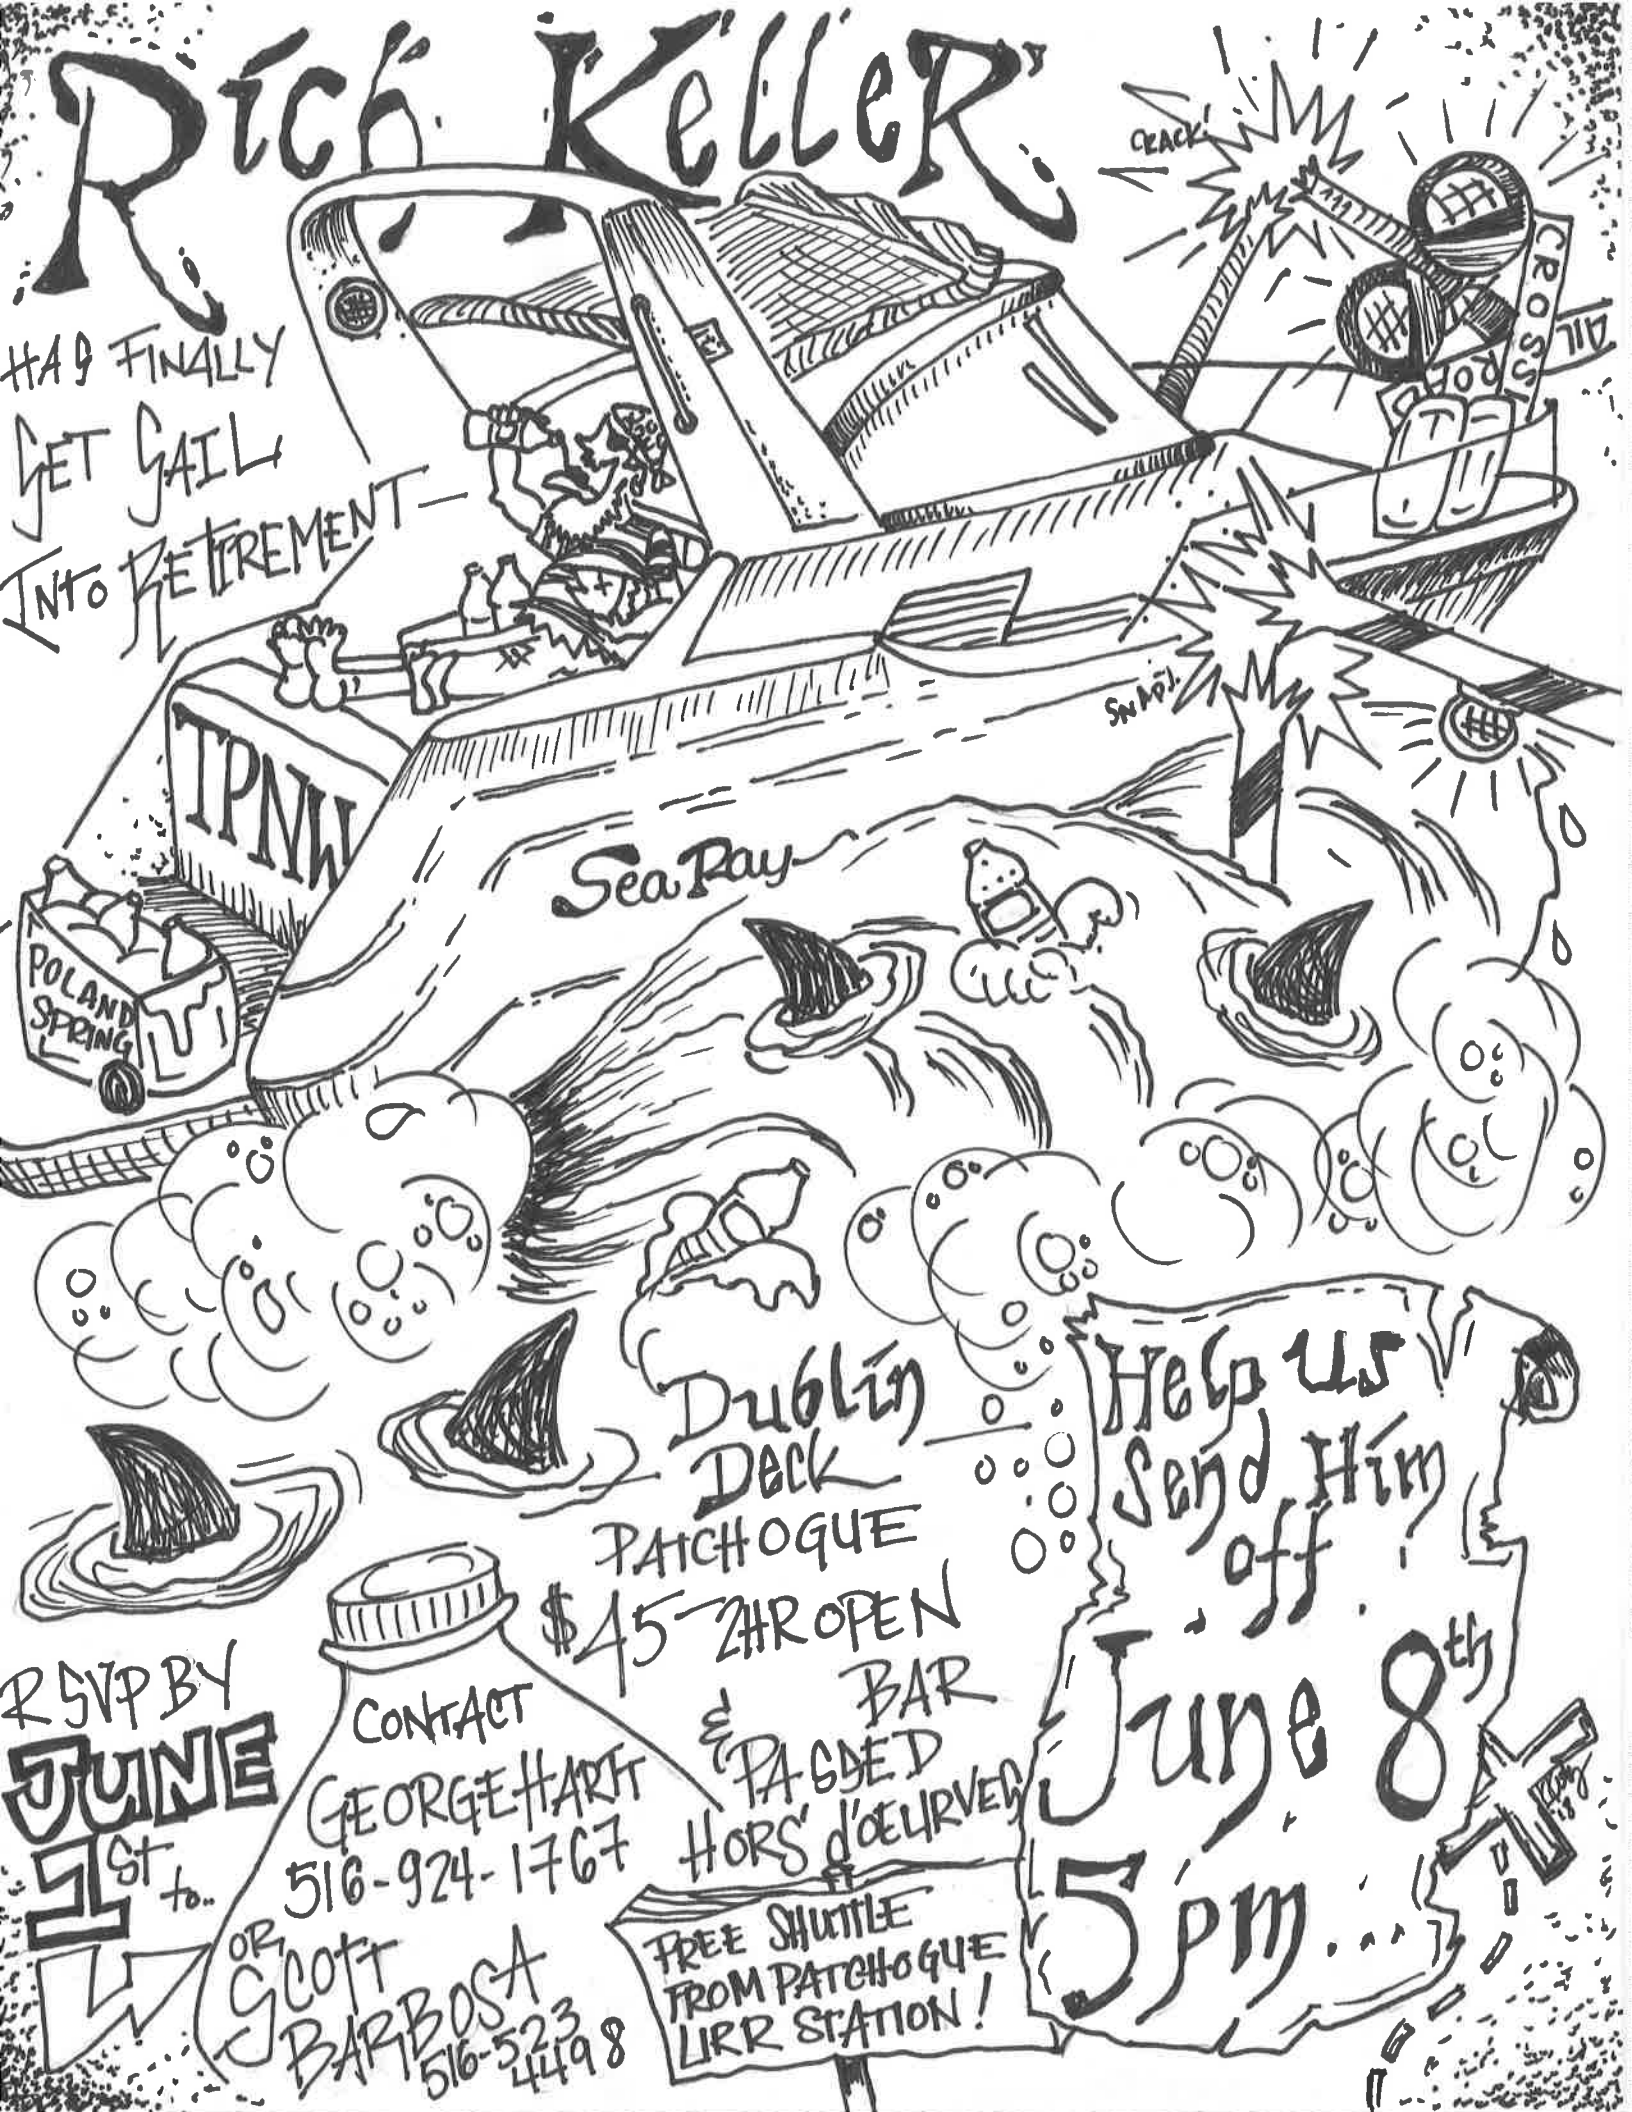 Rich Keller
HAS FINALLY
SET SAIL
INTO RETIREMENT-
CRACK!
CROSSI
ROF
AIL
SNAP!
TPNW
Sea Ray
POLAND
SPRING
Dublin
Deck
PATCHOGUE
$45-2HR OPEN
BAR
& PASSED
HORS d'OEURVES
Help us
Send Him
off!
June 8th
5pm...
RSVP BY
JUNE
1st to..
CONTACT
GEORGE HARTT
516-924-1767
OR
SCOTT
BARBOSA
516-523
4498
FREE SHUTTLE
FROM PATCHOGUE
LIRR STATION!
'18